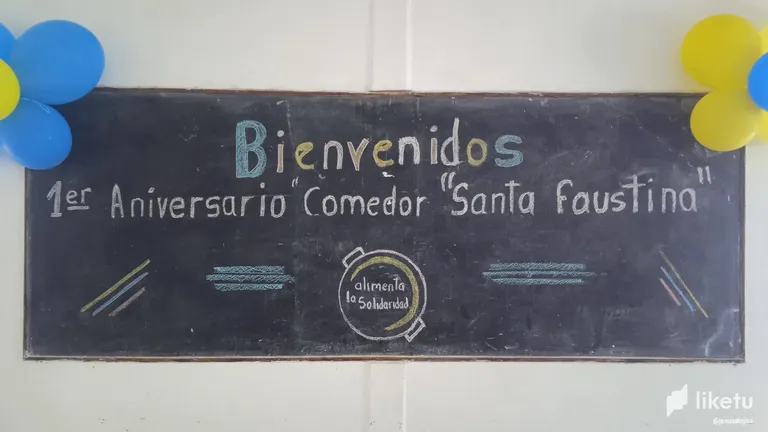 Bienvenidos
1er Aniversario "Comedor "Santa Faustina"
alimenta
la Solidaridad
liketu